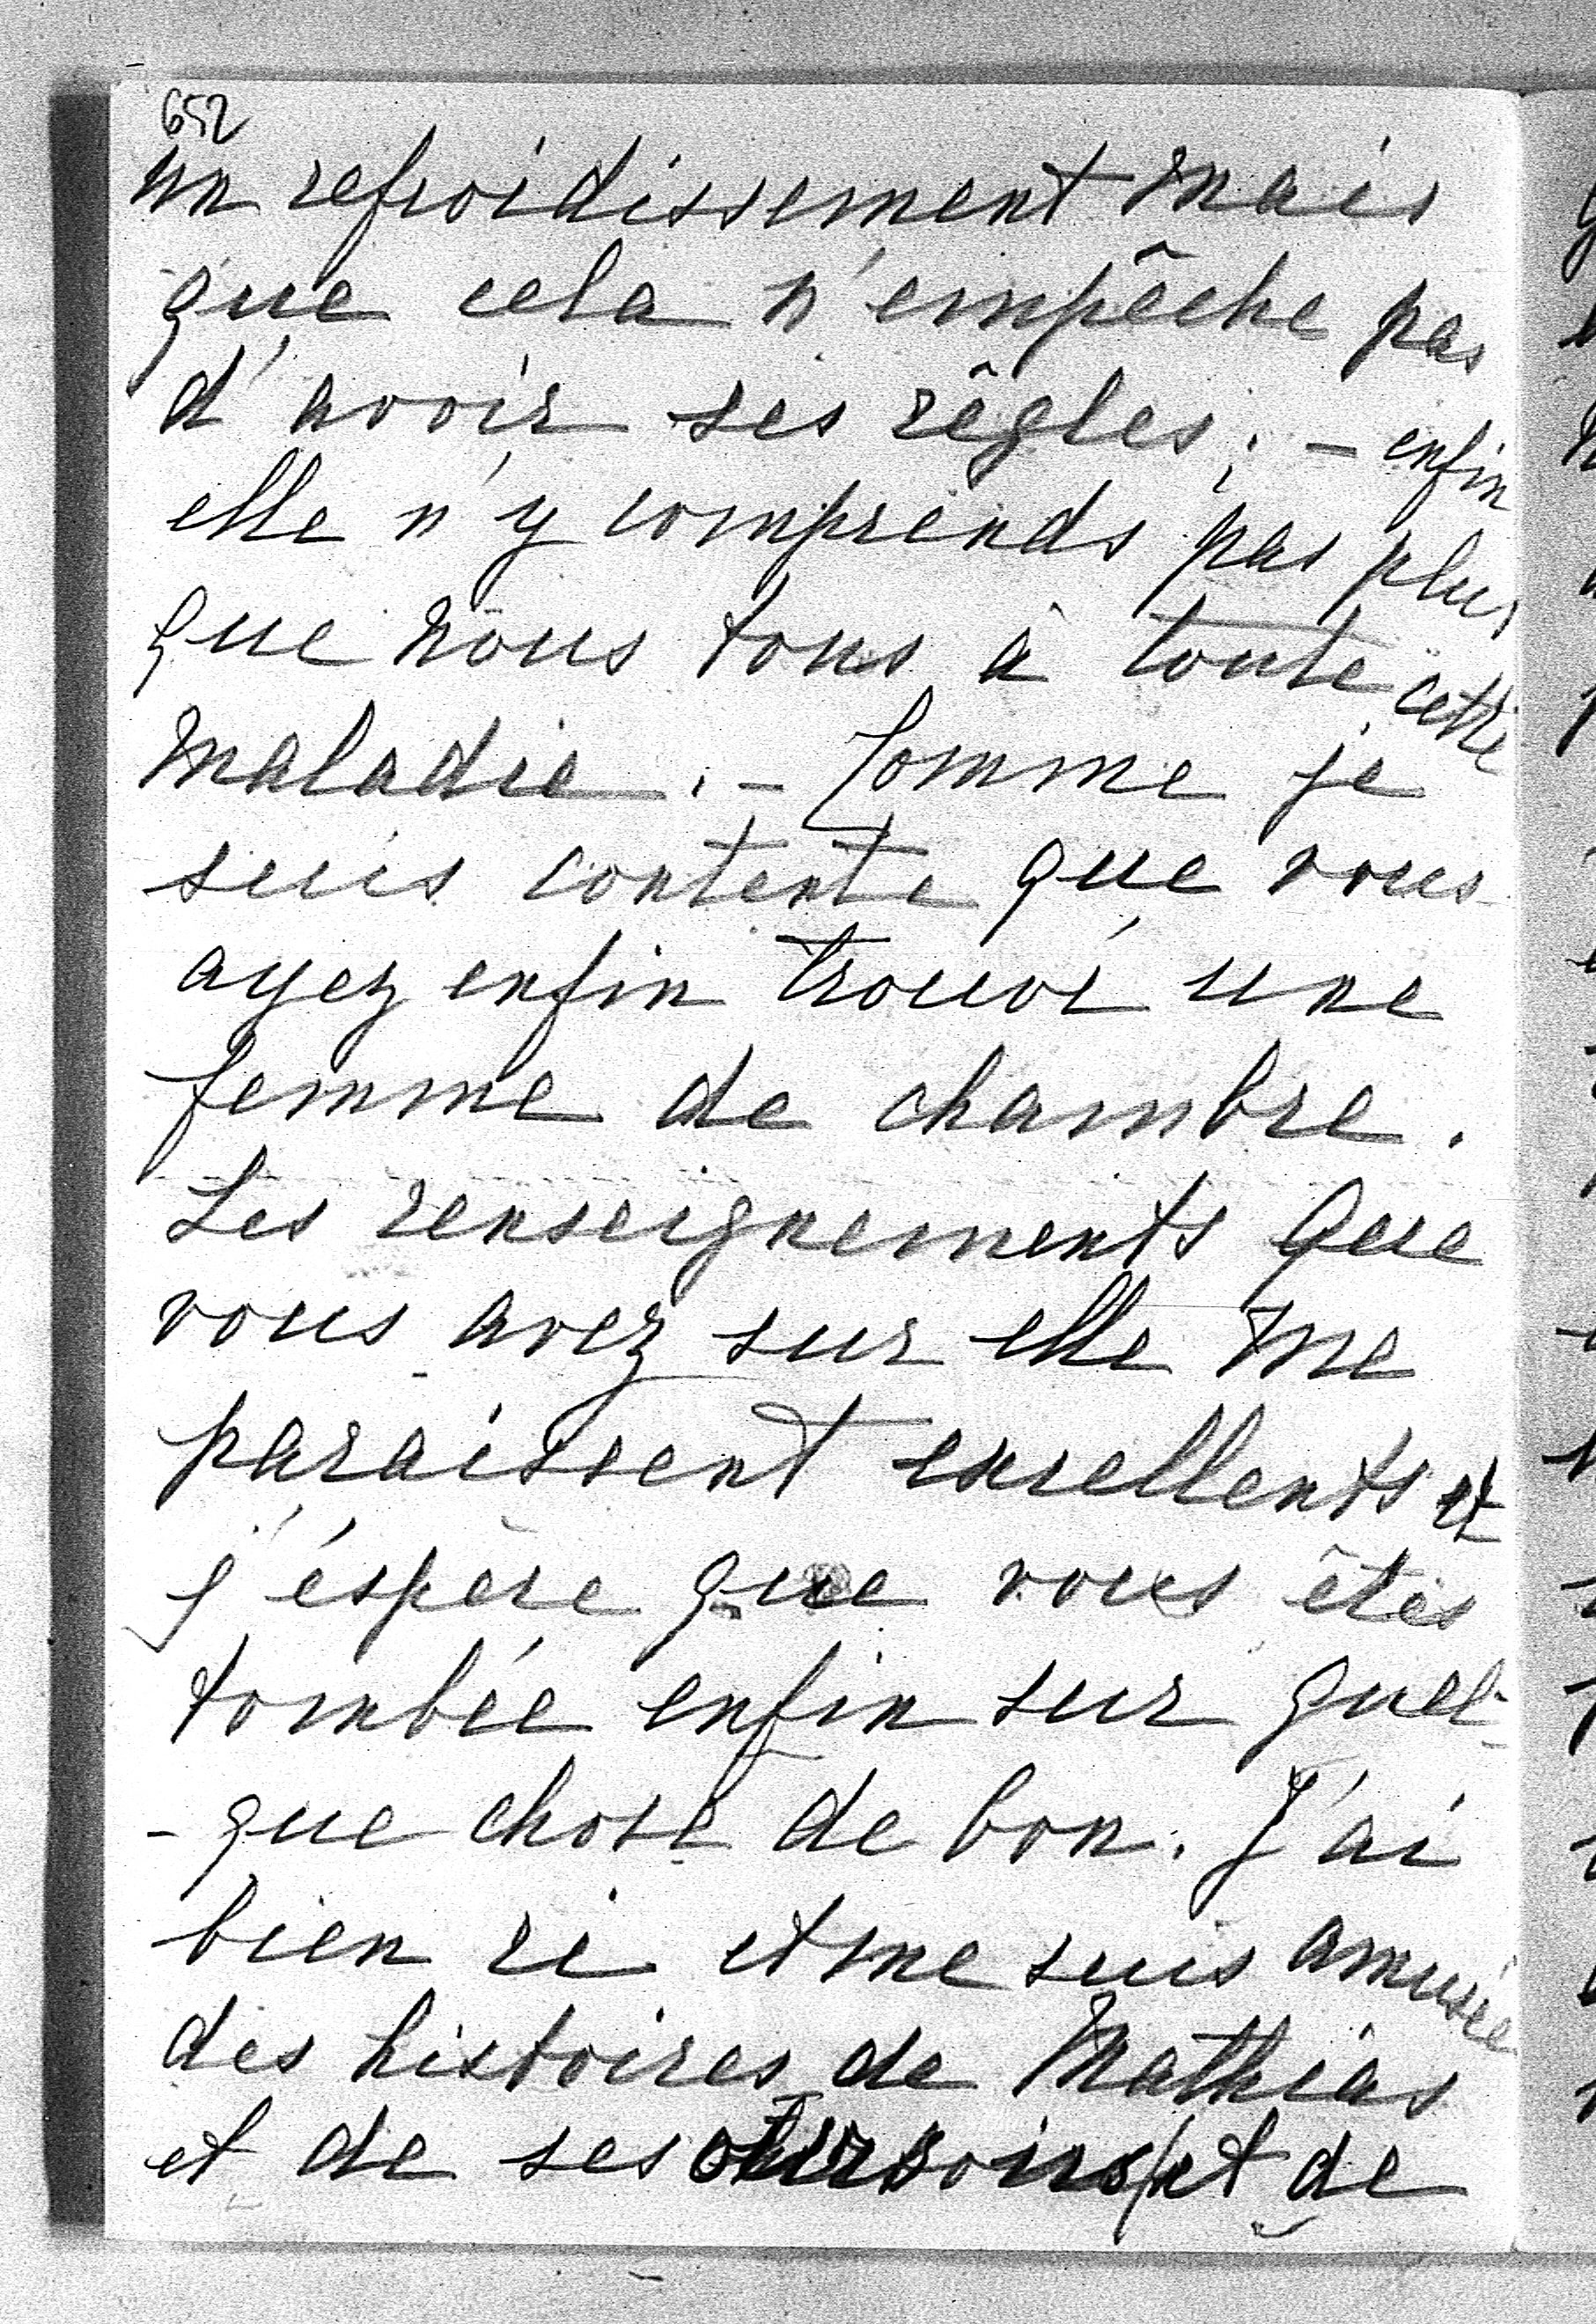 652
un refroidissement mais
que cela n'empêche pas
d'avoir ses rêgles; – enfin
elle n'y comprends pas plus
que nous tous à toute cette
maladie. – Comme je
suis contente que vous
ayez enfin trouvé une
femme de chambre.
Les renseignements que
vous avez sur elle me
paraissent excellents et
j'éspère que vous êtes
tombée enfin sur quel-
-que chose de bon. J'ai
bien ri et me suis amusée
des histoires de Mathias
et de ses et de